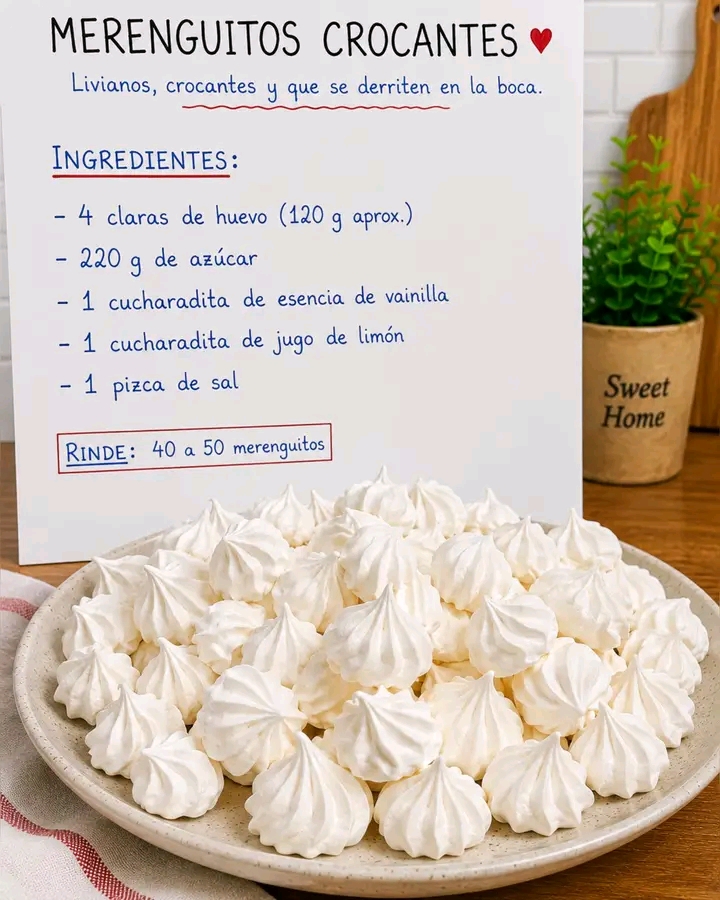 MERENGUITOS CROCANTES
Livianos, crocantes y que se derriten en la boca.
INGREDIENTES:
- 4 claras de huevo (120 g aprox.)
- 220 g de azúcar
- 1 cucharadita de esencia de vainilla
- 1 cucharadita de jugo de limón
- 1 pizca de sal
RINDE: 40 a 50 merenguitos
Sweet
Home